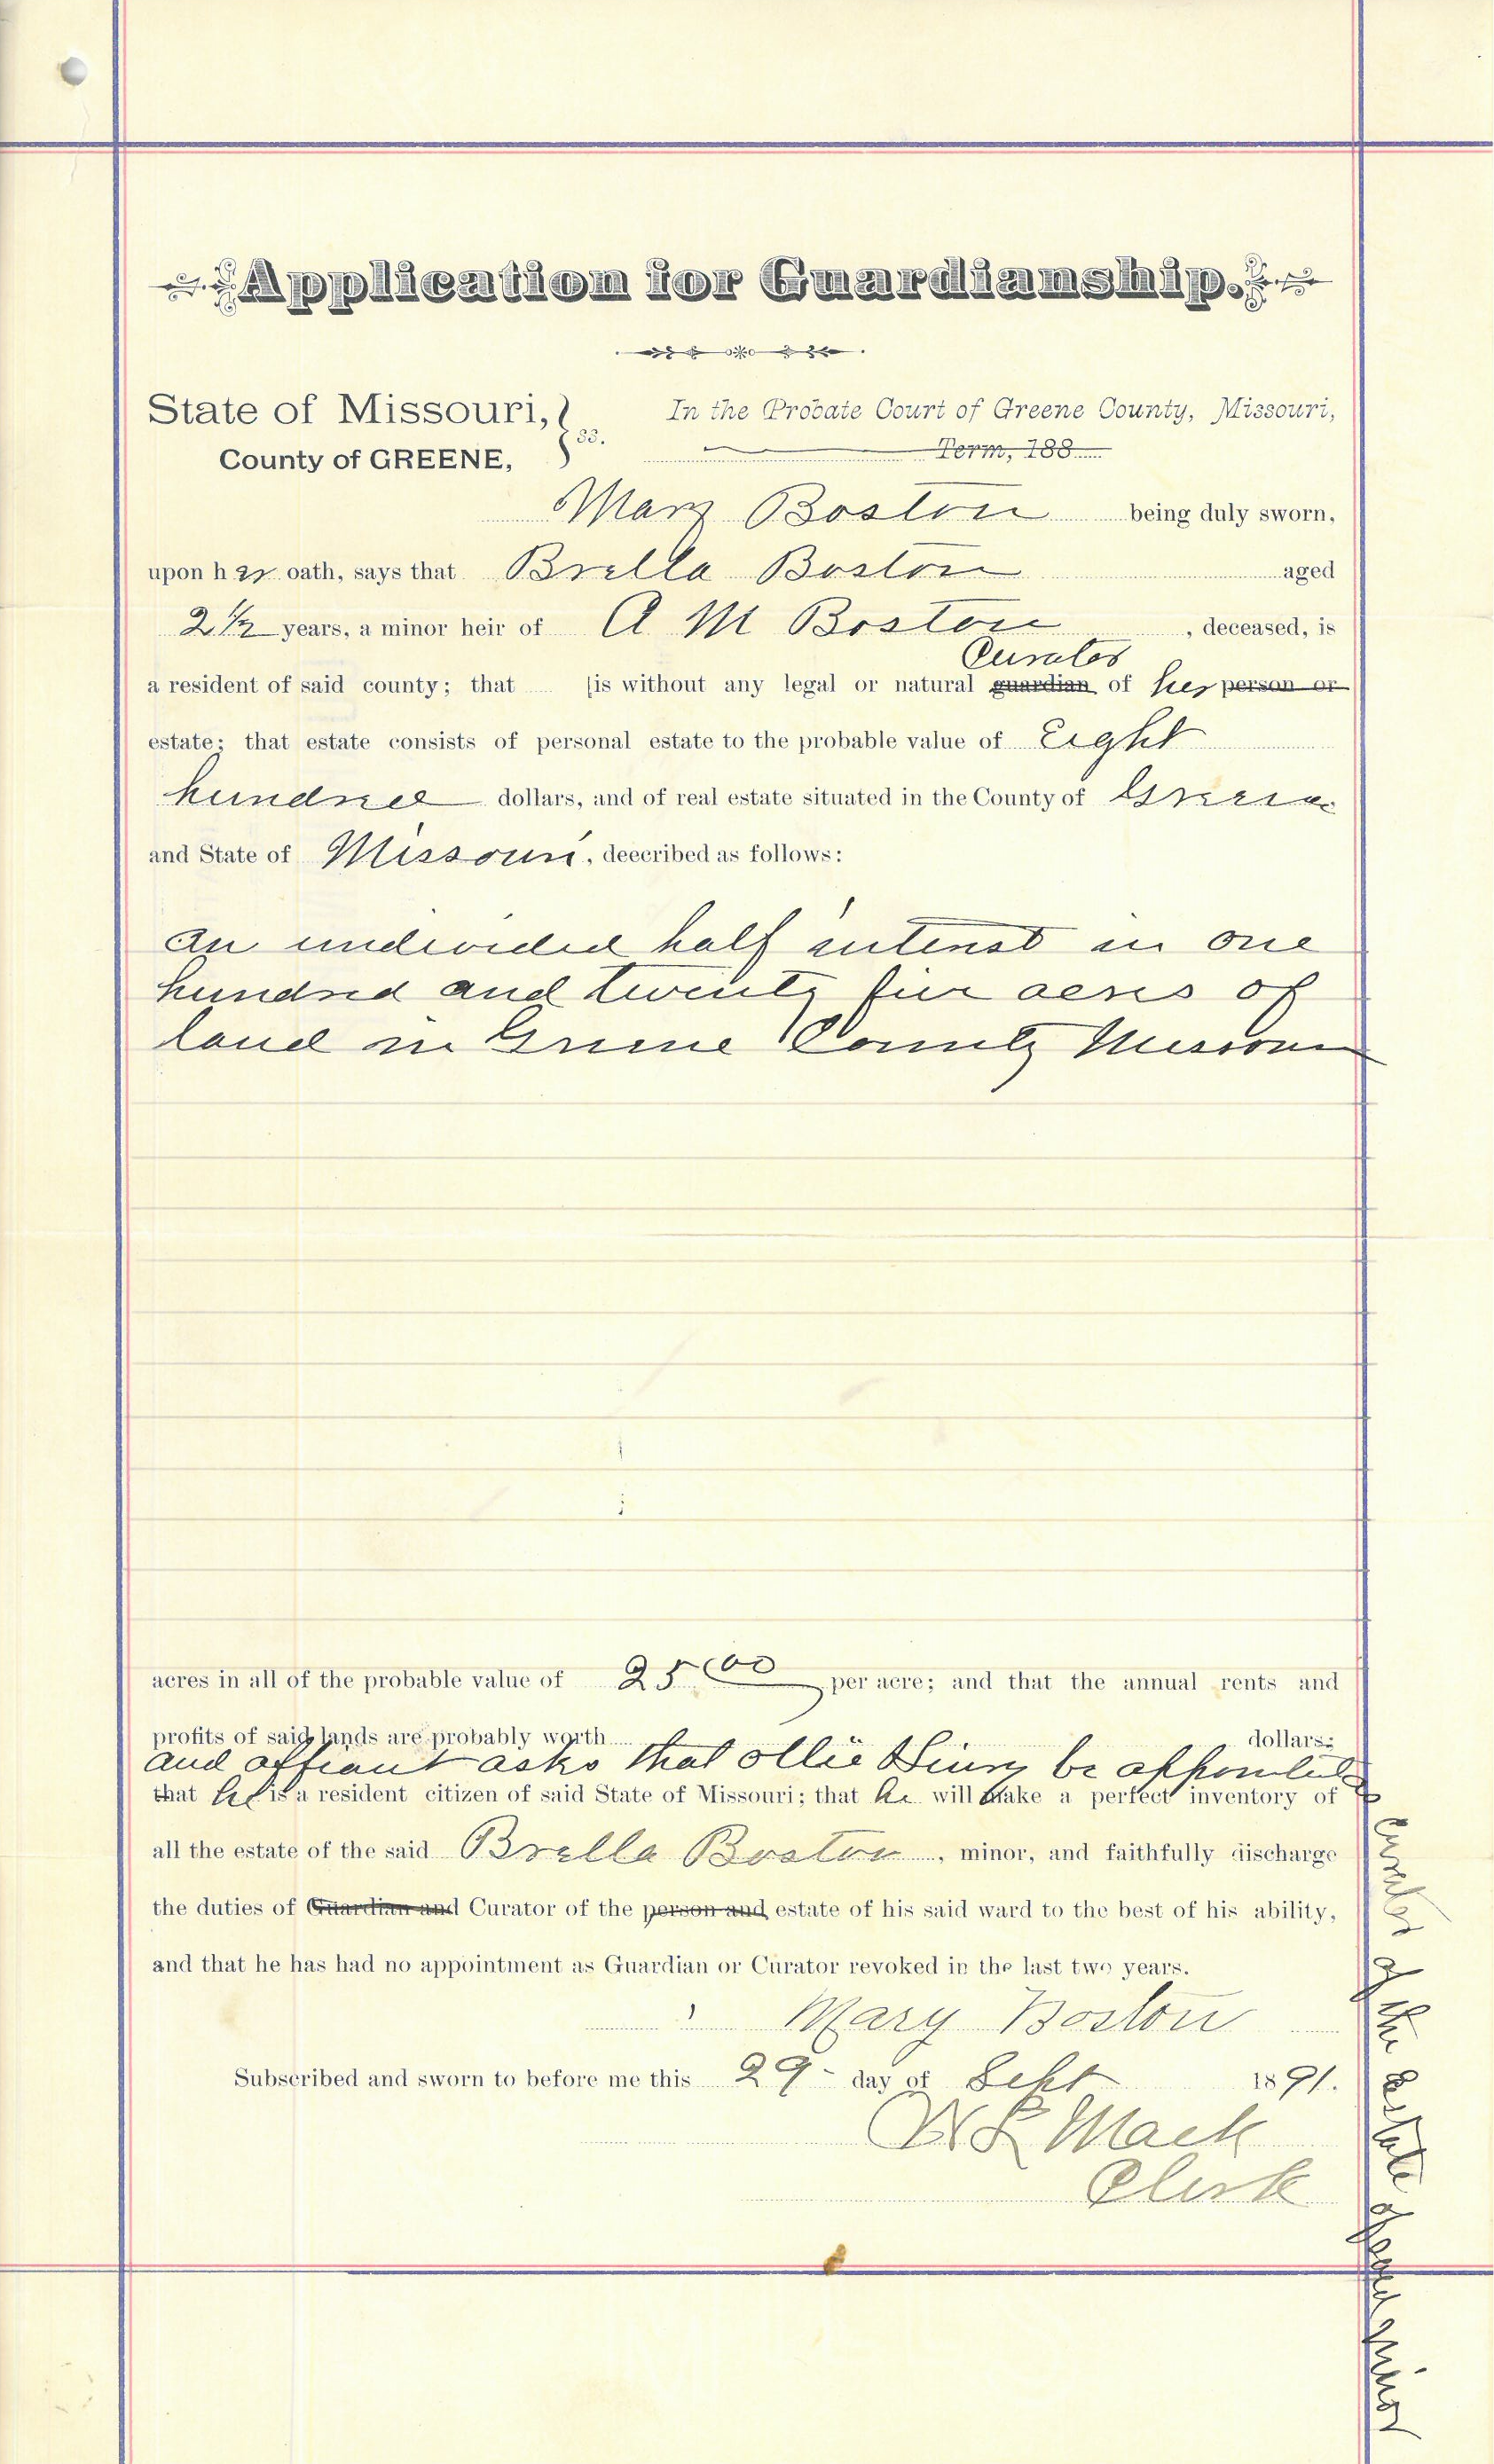 Application for Guardianship.
State of Missouri,
County of GREENE,
ss.
In the Probate Court of Greene County, Missouri,
Term, 188
Mary Boston being duly sworn,
upon her oath, says that Brella Boston aged
2 1/2 years, a minor heir of A M Boston, deceased, is
Curator
a resident of said county; that is without any legal or natural guardian of her person or
estate; that estate consists of personal estate to the probable value of Eight
hundred dollars, and of real estate situated in the County of Greene
and State of Missouri, deecribed as follows:
an undivided half interest in one
hundred and twenty five acres of
land in Greene County Missouri
acres in all of the probable value of 25 00 per acre; and that the annual rents and
profits of said lands are probably worth dollars;
and affiant asks that Ollie be appointed
that he is a resident citizen of said State of Missouri; that he will make a perfect inventory of
all the estate of the said Brella Boston, minor, and faithfully discharge
the duties of Guardian and Curator of the person and estate of his said ward to the best of his ability,
and that he has had no appointment as Guardian or Curator revoked in the last two years.
Mary Boston
Subscribed and sworn to before me this 29 day of Sept 1891.
W L Mack
Clerk
Curator of the Estate of